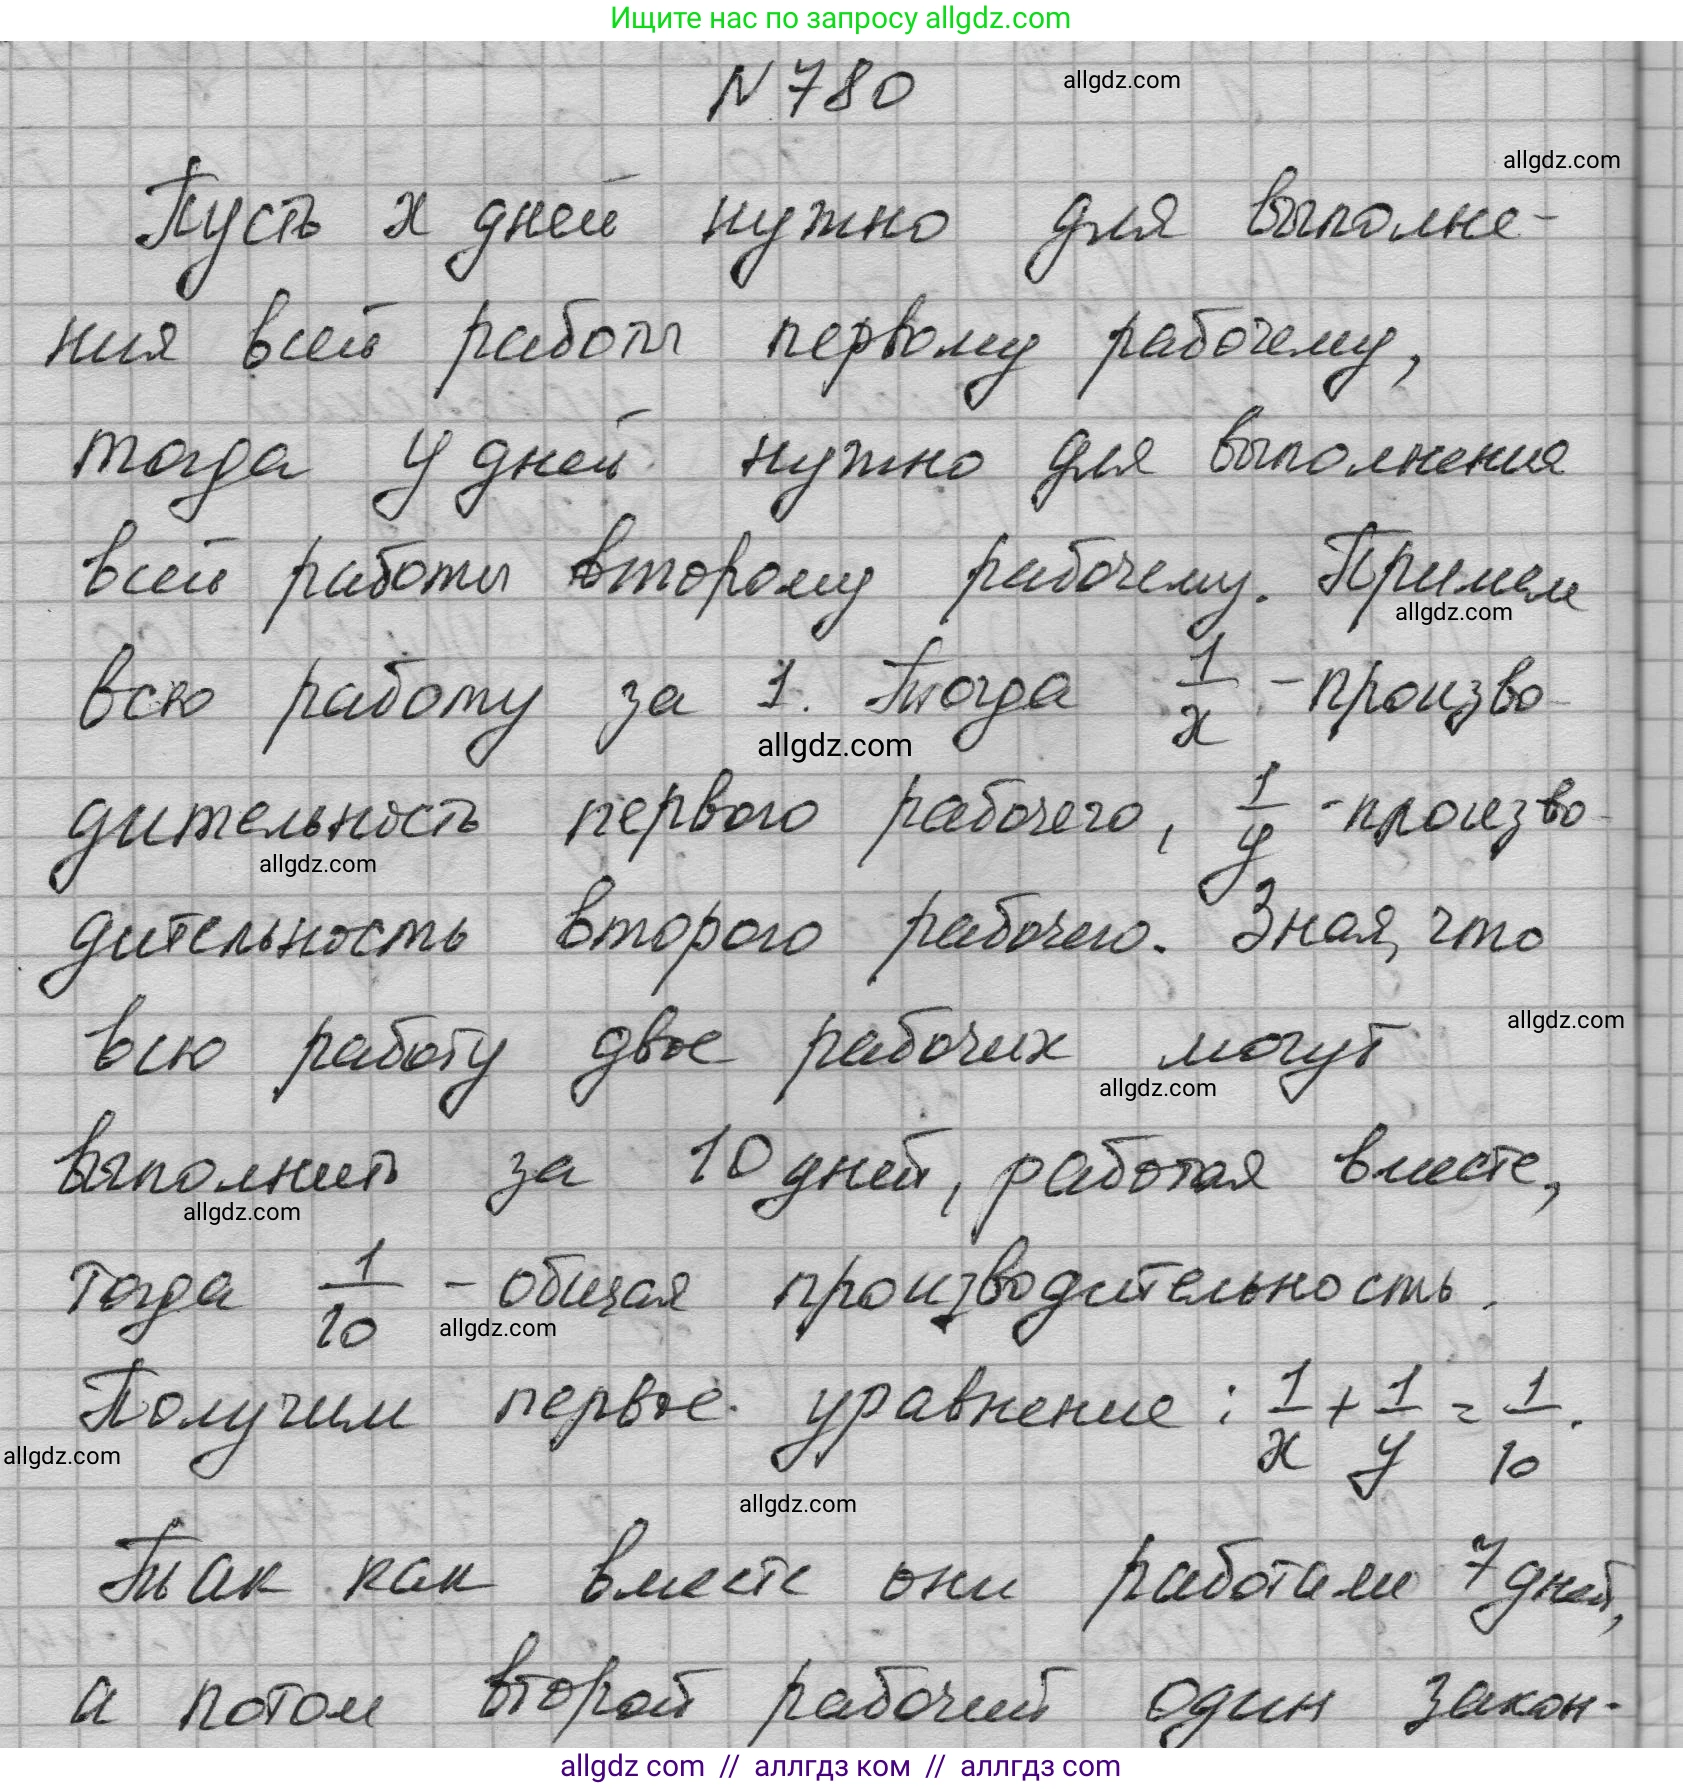 Ищите нас по запросу allgdz.com
N 780
allgdz.com
allgdz.com
Пусть x дней нужно для выполне-
ния всей работы первому рабочему,
тогда y дней нужно для выполнения
всей работы второму рабочему. Примем
allgdz.com
всю работу за 1. Тогда 1/x - произво-
allgdz.com
дительность первого рабочего, 1/y - произво-
allgdz.com
дительность второго рабочего. Зная, что
всю работу двое рабочих могут
allgdz.com
allgdz.com
выполнить за 10 дней, работая вместе,
allgdz.com
тогда 1/10 - общая производительность.
allgdz.com
Получим первое уравнение: 1/x + 1/y = 1/10.
allgdz.com
allgdz.com
Так как вместе они работали 7 дней,
а потом второй рабочий один закон-
allgdz.com // аллгдз ком // аллгдз com